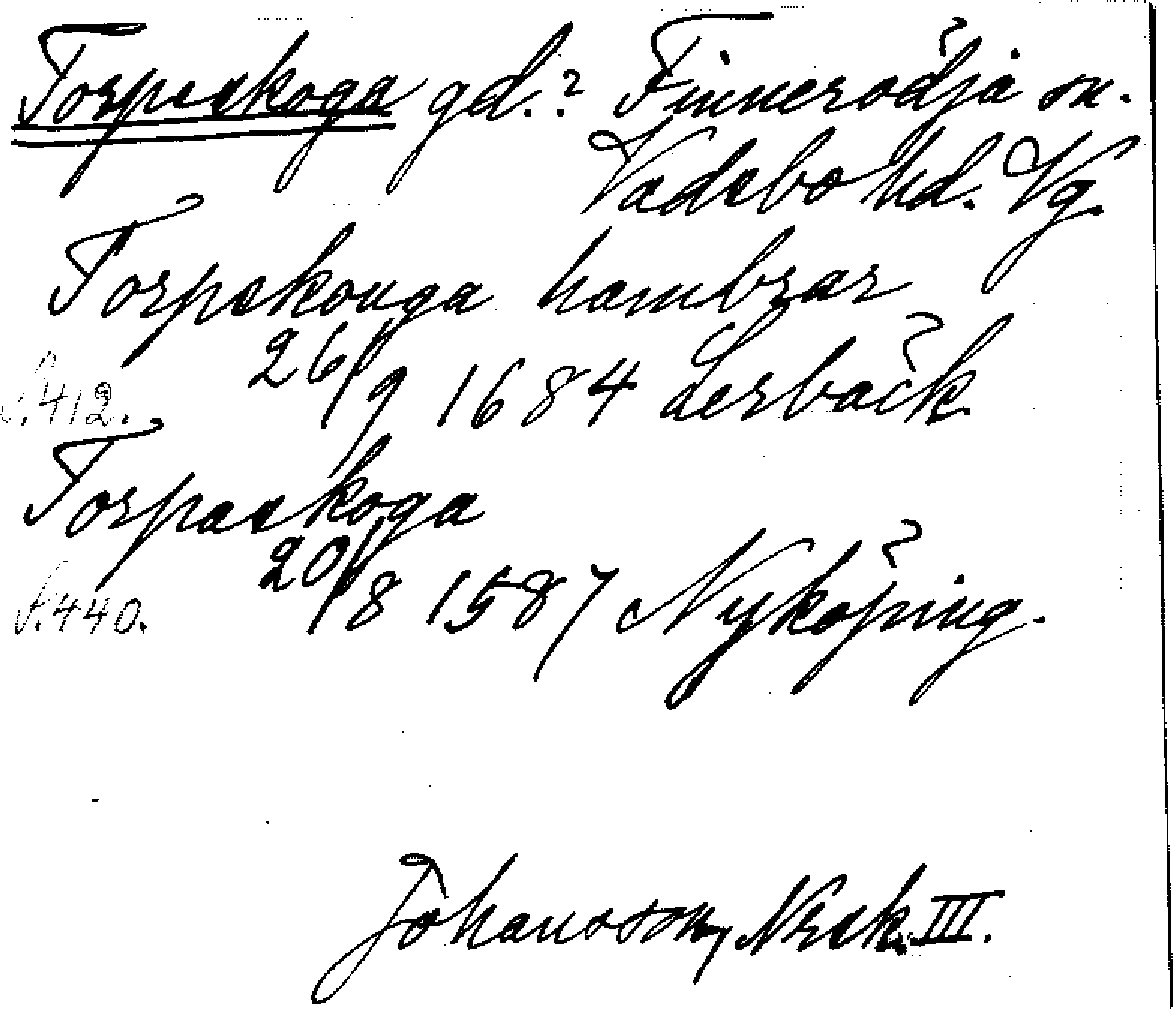 Torpaskoga gd.? Finnerödja sn.
Vadsbo hd. Vg.
Torpskouga hambrar
s.412. 26/9 1684 Lerbäck
Torpaskoga
s.440. 20/8 1587 Nyköping.
Johansson, Nrck. III.